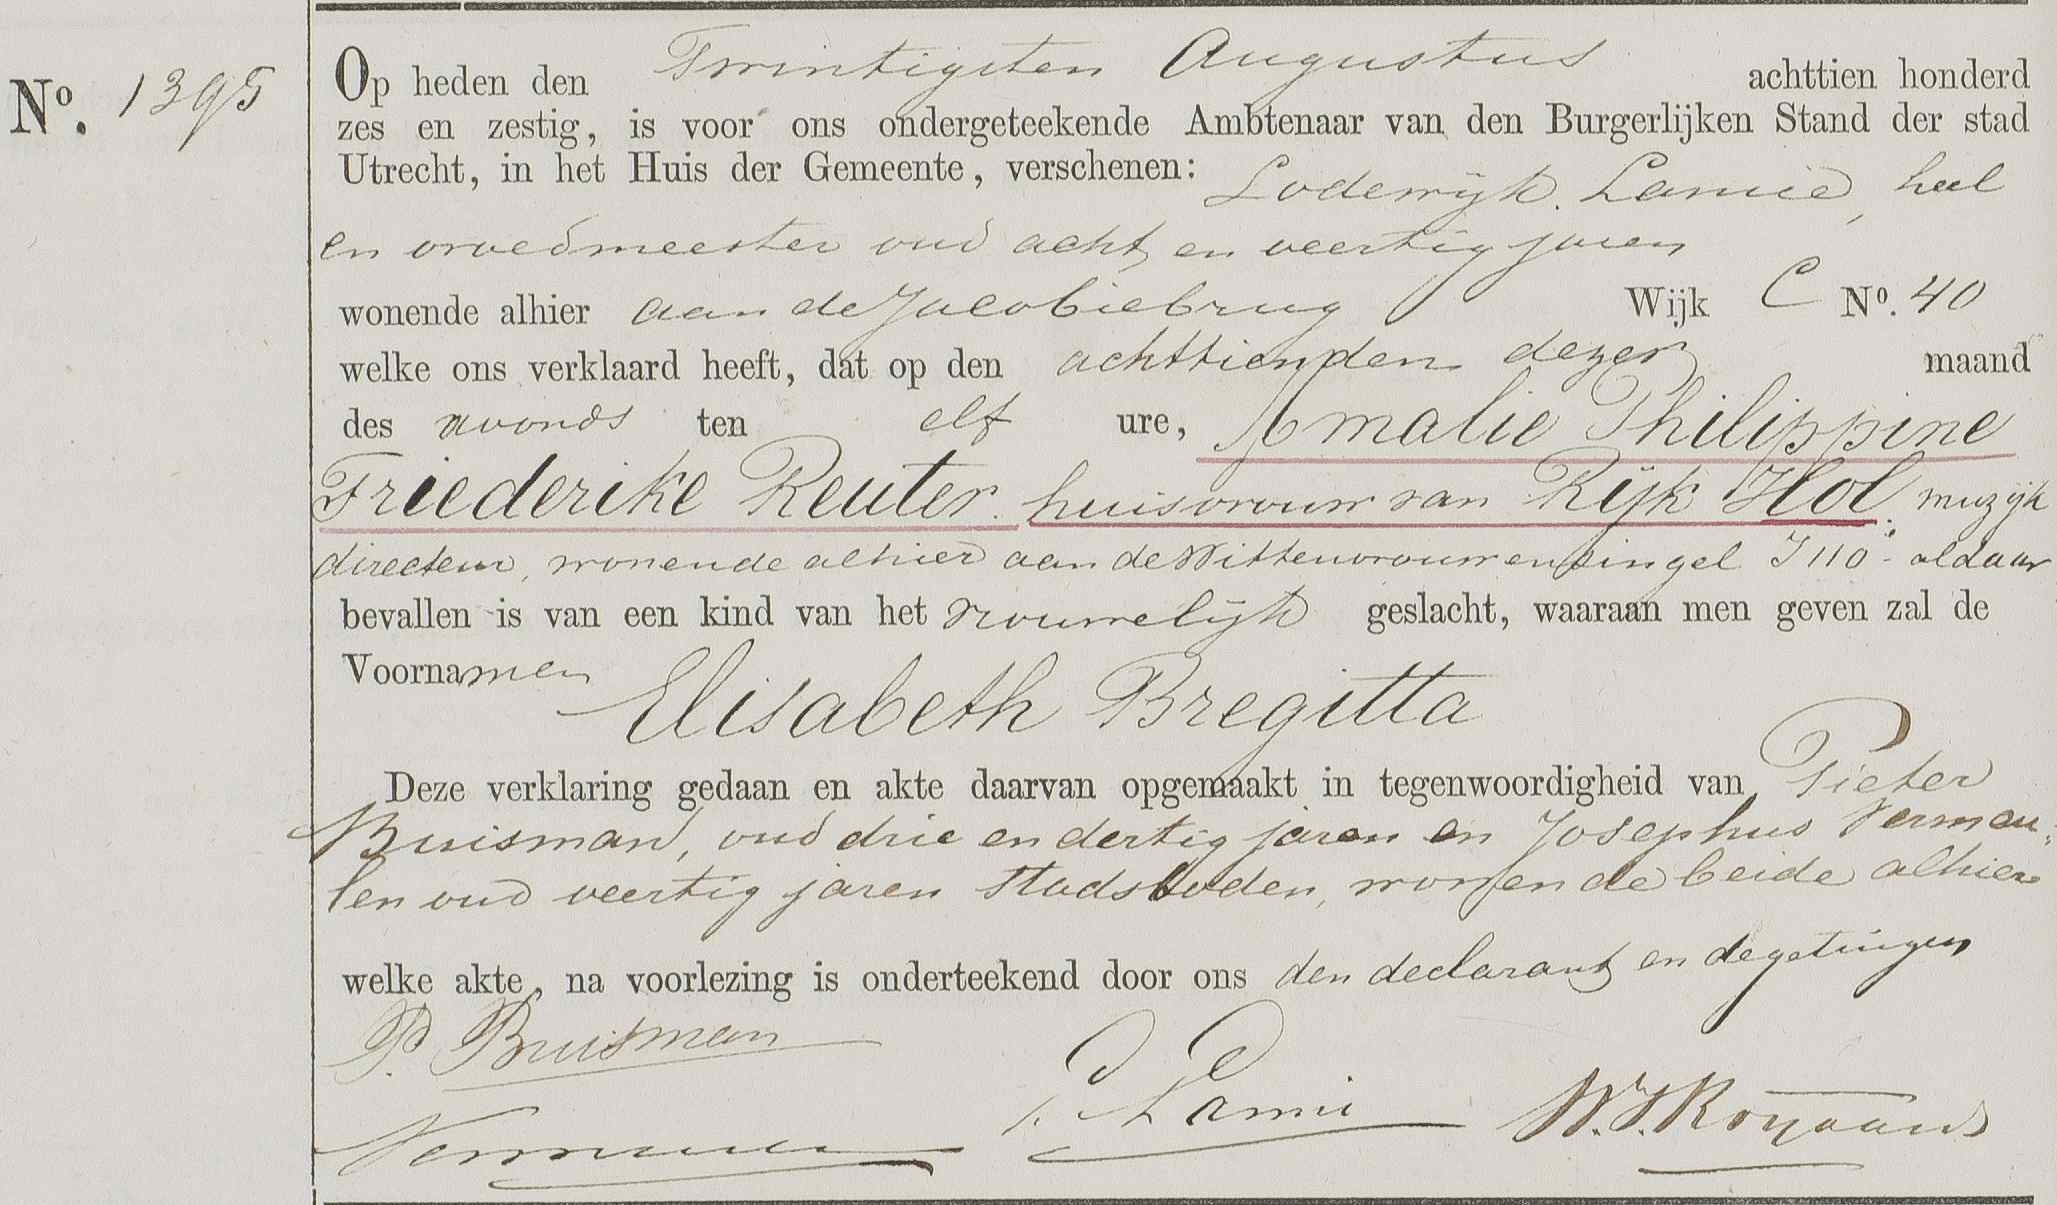 No. 1395
Op heden den Twintigsten Augustus achttien honderd
zes en zestig, is voor ons ondergeteekende Ambtenaar van den Burgerlijken Stand der stad
Utrecht, in het Huis der Gemeente, verschenen: Lodewijk Lamie, heel
en vroedmeester oud acht en veertig jaren
wonende alhier aan de Jacobiebrug Wijk C No. 40
welke ons verklaard heeft, dat op den achttienden dezer maand
des avonds ten elf ure, Amalie Philippine
Friederike Reuter huisvrouw van Rijk Hol, muzijk
directeur, wonende alhier aan de Wittevrouwensingel I 110 aldaar
bevallen is van een kind van het vrouwelijk geslacht, waaraan men geven zal de
Voornamen Elisabeth Bregitta
Deze verklaring gedaan en akte daarvan opgemaakt in tegenwoordigheid van Pieter
Buisman, oud drie en dertig jaren en Josephus Vermeu:
len oud veertig jaren Stadsboden, wonende beide alhier
welke akte, na voorlezing is onderteekend door ons den declarant en de getuigen
P. Buisman
L. Lamie
W. J. Royaards
Vermeulen